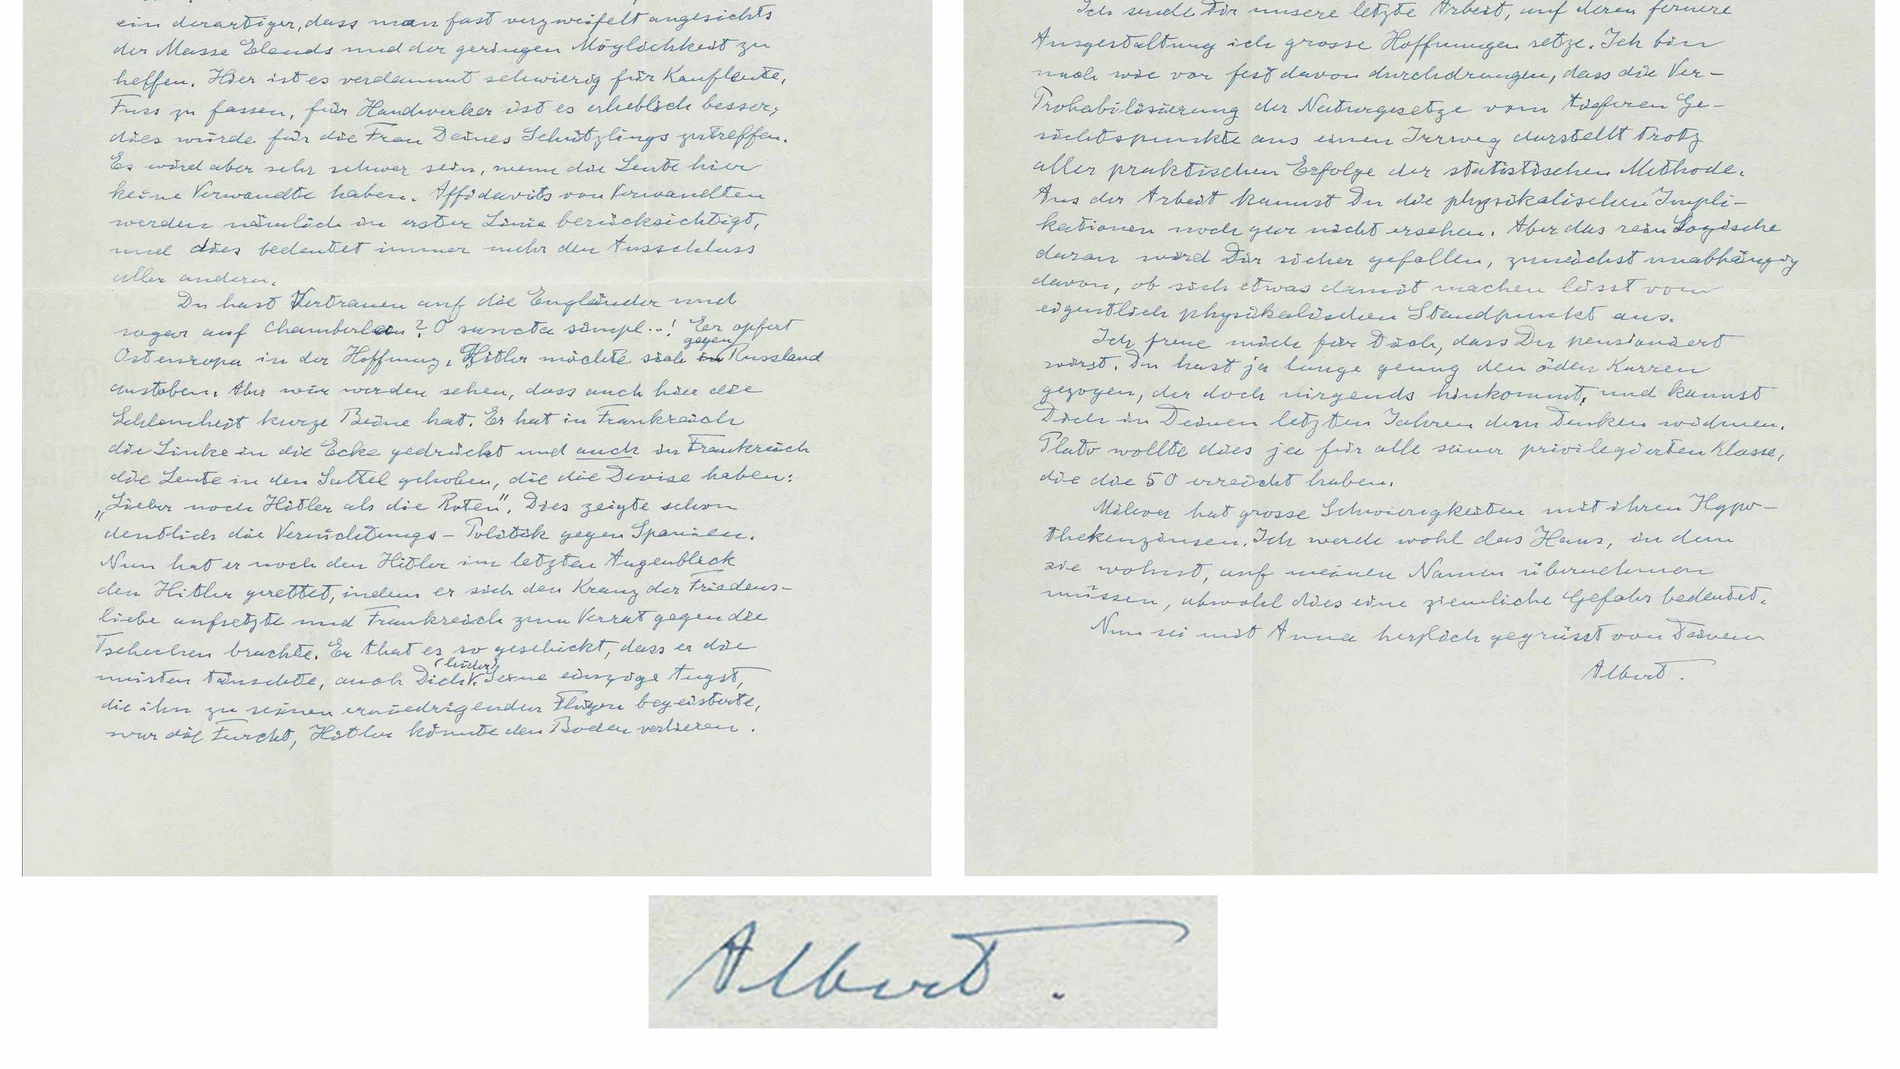 ein derartiger, dass man fast verzweifelt angesichts
der Masse Elends und der geringen Möglichkeit zu
helfen. Hier ist es verdammt schwierig für Kaufleute,
Fuss zu fassen, für Handwerker ist es erheblich besser;
dies würde für die Frau Deines Schützlings zutreffen.
Es wird aber sehr schwer sein, wenn die Leute hier
keine Verwandte haben. Affidavits von Verwandten
werden nämlich in erster Linie berücksichtigt,
und dies bedeutet immer mehr den Ausschluss
aller andern.
Du hast Vertrauen auf die Engländer und
sogar auf Chamberlain? O sancta simpl..! Er opfert
Osteuropa in der Hoffnung, Hitler möchte sich gegen Russland
austoben. Aber wir werden sehen, dass auch hier die
Schlauheit kurze Beine hat. Er hat in Frankreich
die Linke in die Ecke gedrückt und auch in Frankreich
die Leute in den Sattel gehoben, die die Devise haben:
„Lieber noch Hitler als die Roten". Dies zeigte schon
deutlich die Vernichtungs-Politik gegen Spanien.
Nun hat er noch den Hitler im letzten Augenblick
den Hitler gerettet, indem er sich den Kranz der Friedens-
liebe aufsetzte und Frankreich zum Verrat gegen die
Tschechen brachte. Er that es so geschickt, dass er die
meisten täuschte, auch Dich (leider). Seine einzige Angst,
die ihn zu seinen erniedrigenden Flügen begeisterte,
war die Furcht, Hitler könnte den Boden verlieren.
Ich sende Dir unsere letzte Arbeit, auf deren fernere
Ausgestaltung ich grosse Hoffnungen setze. Ich bin
nach wie vor fest davon durchdrungen, dass die Ver-
Probabilisierung der Naturgesetze vom tieferen Ge-
sichtspunkte aus einen Irrweg darstellt trotz
aller praktischen Erfolge der statistischen Methode.
Aus der Arbeit kannst Du die physikalischen Impli-
kationen noch gar nicht ersehen. Aber das rein Logische
daran wird Dir sicher gefallen, zunächst unabhängig
davon, ob sich etwas damit machen lässt vom
eigentlich physikalischen Standpunkt aus.
Ich freue mich für Dich, dass Du pensioniert
wirst. Du hast ja lange genug den öden Karren
gezogen, der doch nirgends hinkommt, und kannst
Dich in Deinen letzten Jahren dem Denken widmen.
Plato wollte dies ja für alle seiner privilegierten Klasse,
die die 50 erreicht haben.
Mileva hat grosse Schwierigkeiten mit ihren Hypo-
thekenzinsen. Ich werde wohl das Haus, in dem
sie wohnt, auf meinen Namen übernehmen
müssen, obwohl dies eine ziemliche Gefahr bedeutet.
Nun sei mit Anna herzlich gegrüsst von Deinem
Albert.
Albert.